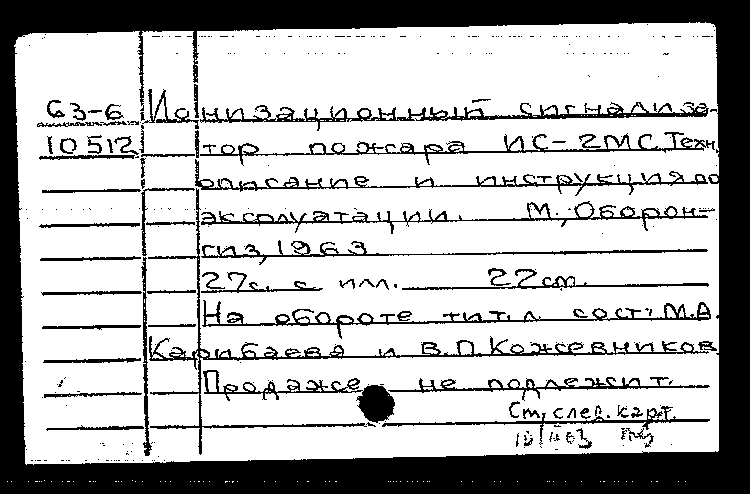 63-6 Ионизационный сигнализа-
10512 тор пожара ИС-2МС. Техн.
описание и инструкция по
эксплуатации. М., Оборон-
гиз, 1963.
27 с. с илл. 22 см.
На обороте тит. л. сост: М.А.
Карибаева и В.П. Кожевников
Продаже не подлежит.
См. след. карт.